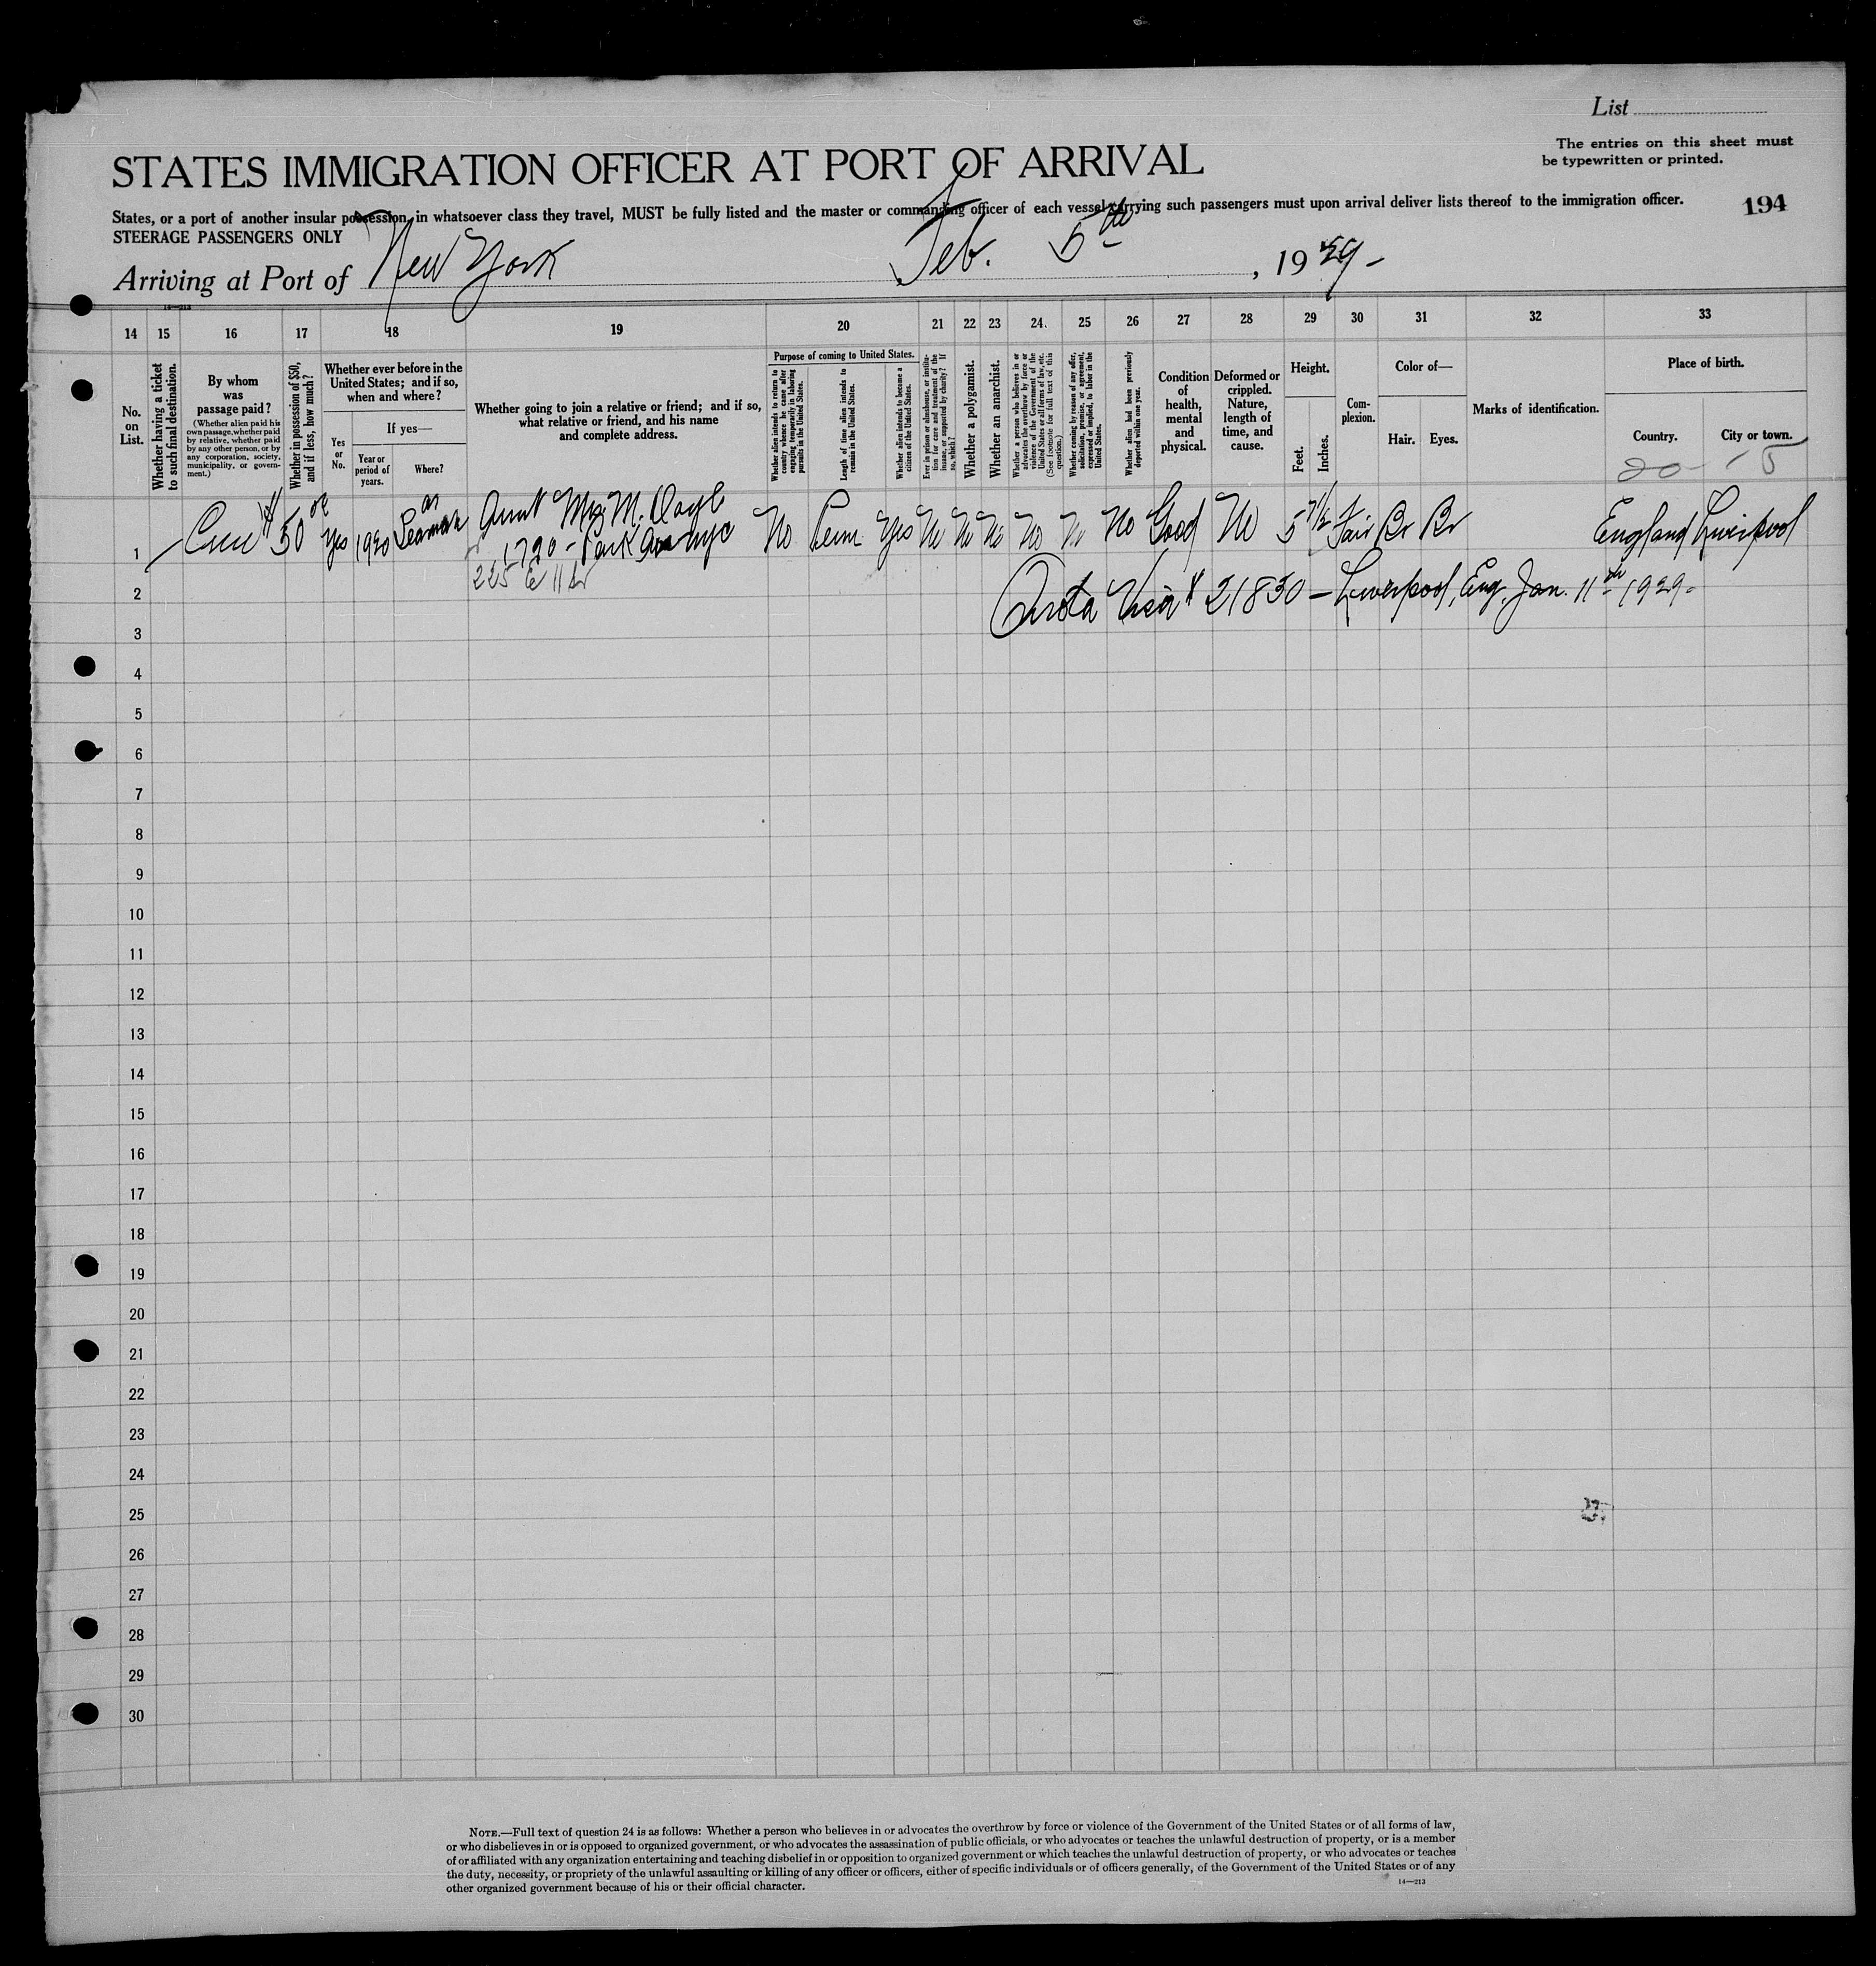 List
The entries on this sheet must
be typewritten or printed.
STATES IMMIGRATION OFFICER AT PORT OF ARRIVAL
States, or a port of another insular possession, in whatsoever class they travel, MUST be fully listed and the master or commanding officer of each vessel carrying such passengers must upon arrival deliver lists thereof to the immigration officer.
194
STEERAGE PASSENGERS ONLY
Arriving at Port of New York Feb. 5th, 1929-
14—213
14 15 16 17 18 19 20 21 22 23 24. 25 26 27 28 29 30 31 32 33
No.
on
List.
Whether having a ticket
to such final destination.
By whom
was
passage paid?
(Whether alien paid his
own passage, whether paid
by relative, whether paid
by any other person, or by
any corporation, society,
municipality, or govern-
ment.)
Whether in possession of $50,
and if less, how much?
Whether ever before in the
United States; and if so,
when and where?
Yes
or
No.
If yes—
Year or
period of
years.
Where?
Whether going to join a relative or friend; and if so,
what relative or friend, and his name
and complete address.
Purpose of coming to United States.
Whether alien intends to return to
country whence he came after
engaging temporarily in laboring
pursuits in the United States.
Length of time alien intends to
remain in the United States.
Whether alien intends to become a
citizen of the United States.
Ever in prison or almshouse, or institu-
tion for care and treatment of the
insane, or supported by charity? If
so, which?
Whether a polygamist.
Whether an anarchist.
Whether a person who believes in or
advocates the overthrow by force or
violence of the Government of the
United States or all forms of law, etc.
(See footnote for full text of this
question.)
Whether coming by reason of any offer,
solicitation, promise, or agreement,
expressed or implied, to labor in the
United States.
Whether alien had been previously
deported within one year.
Condition
of
health,
mental
and
physical.
Deformed or
crippled.
Nature,
length of
time, and
cause.
Height.
Feet.
Inches.
Com-
plexion.
Color of—
Hair.
Eyes.
Marks of identification.
Place of birth.
Country.
City or town.
20 - 5
1 $50 Yes 1920 as Seaman Aunt Mrs M. Doyle No Perm Yes No No No No No No Good No 5 7½ Fair Br Br England Liverpool
1790 - Park Ave NYC
225 E 11 St
2 Quota Visa # 21830 - Liverpool, Eng. Jan. 11th 1929-
3
4
5
6
7
8
9
10
11
12
13
14
15
16
17
18
19
20
21
22
23
24
25
26
27
28
29
30
NOTE.—Full text of question 24 is as follows: Whether a person who believes in or advocates the overthrow by force or violence of the Government of the United States or of all forms of law,
or who disbelieves in or is opposed to organized government, or who advocates the assassination of public officials, or who advocates or teaches the unlawful destruction of property, or is a member
of or affiliated with any organization entertaining and teaching disbelief in or opposition to organized government or which teaches the unlawful destruction of property, or who advocates or teaches
the duty, necessity, or propriety of the unlawful assaulting or killing of any officer or officers, either of specific individuals or of officers generally, of the Government of the United States or of any
other organized government because of his or their official character.
14—213